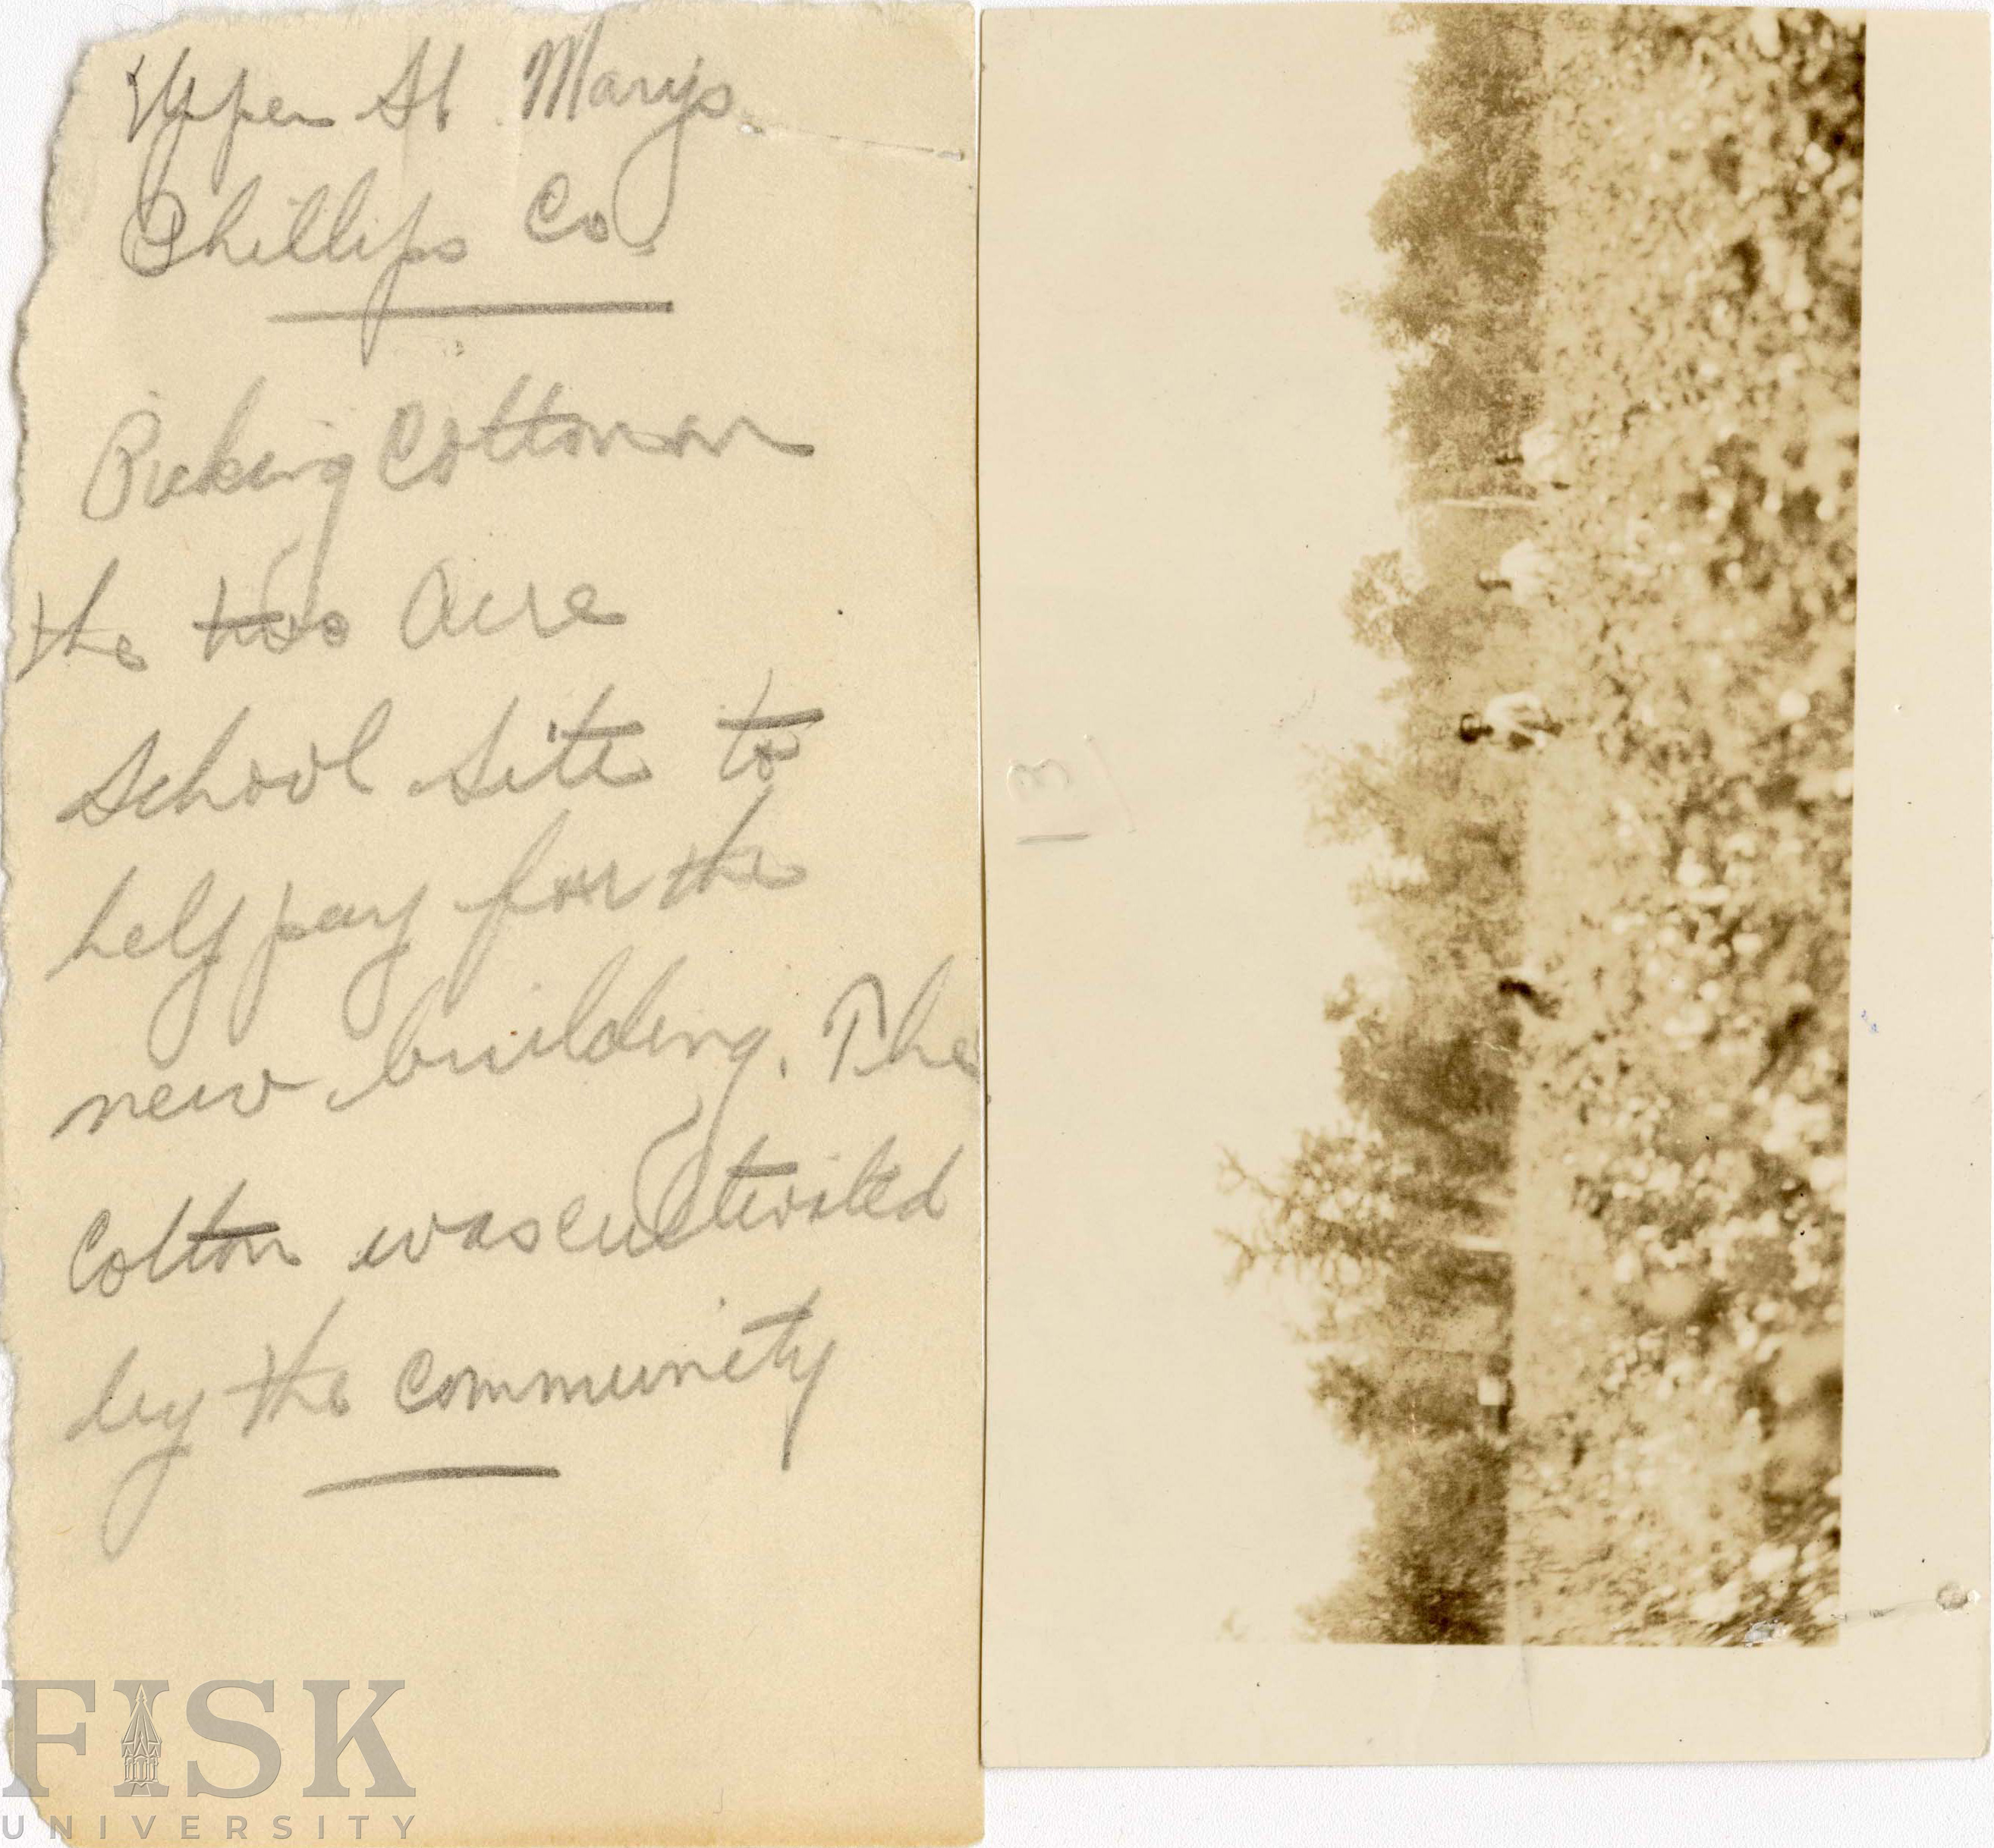 Upper St Marys
Phillips Co.
Picking Cotton on
the two Acre
school site to
help pay for the
new building. The
Cotton was cultivated
by the community
13
FISK
UNIVERSITY